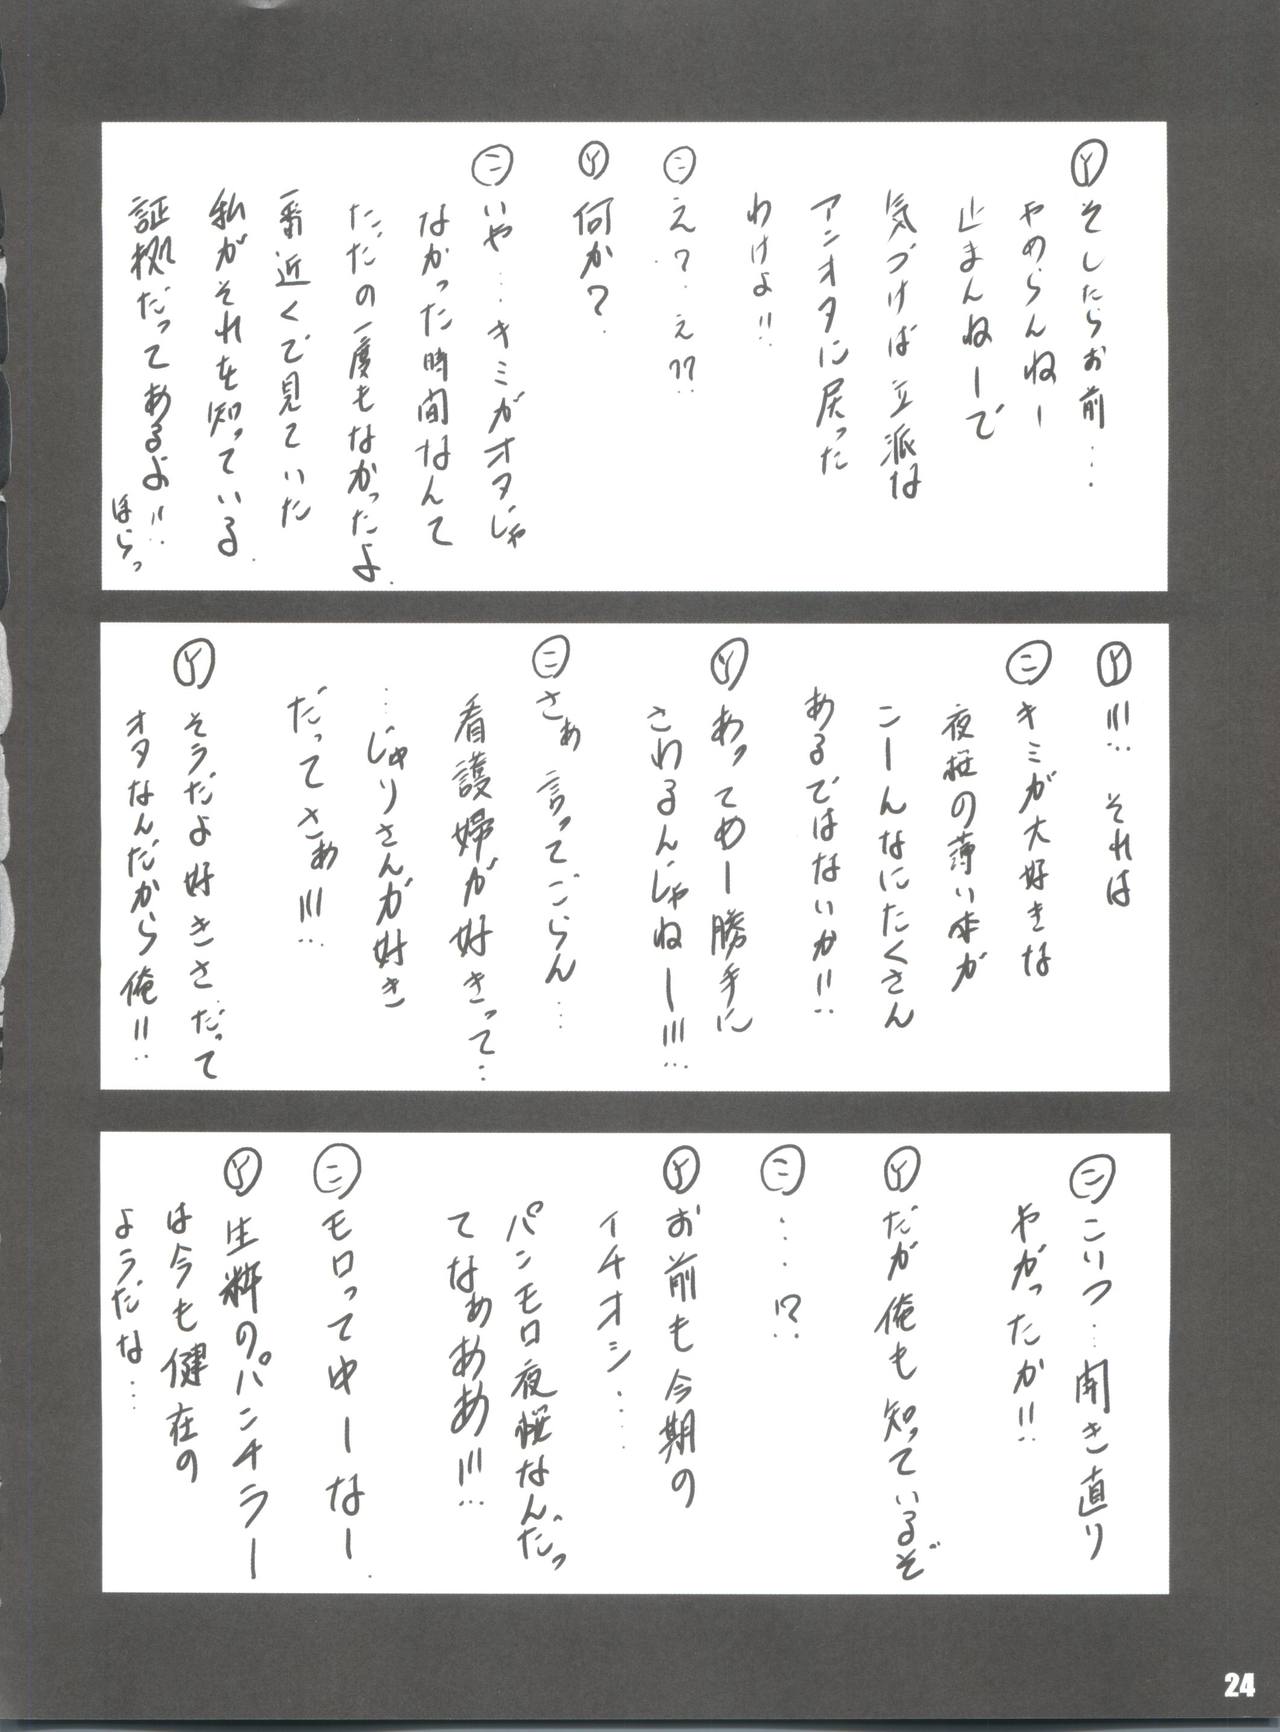 Ⓨそしたらお前…
やめらんねー
止まんねーで
気づけば立派な
アンオタに戻った
わけよ!!
㊁え?‥え??
Ⓨ何か?
㊁いや…キミがオタじゃ
なかった時間なんて
ただの一度もなかったよ
一番近くで見ていた
私がそれを知っている
証拠だってあるよ!!
ほらっ
Ⓨ!!!‥それは
㊁キミが大好きな
夜桜の薄い本が
こーんなにたくさん
あるではないか!!
Ⓨあってめー勝手に
さわるんじゃねー!!!
㊁さぁ言ってごらん…
看護婦が好きって‥
…じゅりさんが好き
だってさぁ!!!
Ⓨそうだよ好きさだって
オタなんだから俺!!
㊁こいつ…開き直り
やがったか!!
Ⓨだが俺も知っているぞ
㊁…!?
Ⓨお前も今期の
イチオシ…
パンモロ夜桜なんだっ
てなぁああ!!!
㊁モロってゆーなー
Ⓨ生粋のパンチラー
は今も健在の
ようだな…
24